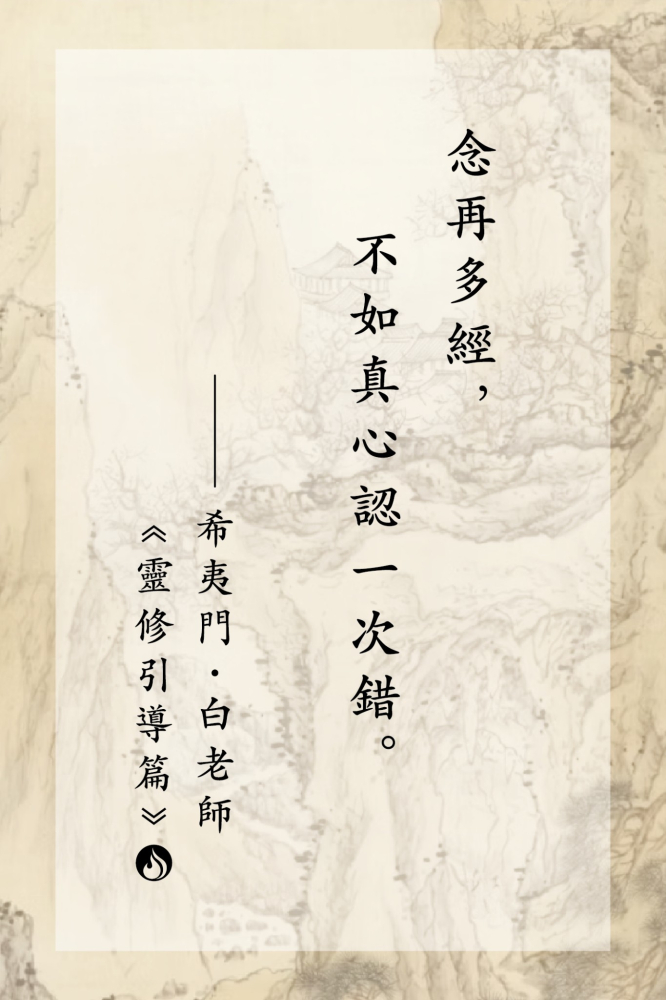 念再多經，
不如真心認一次錯。
——希夷門·白老師
《靈修引導篇》